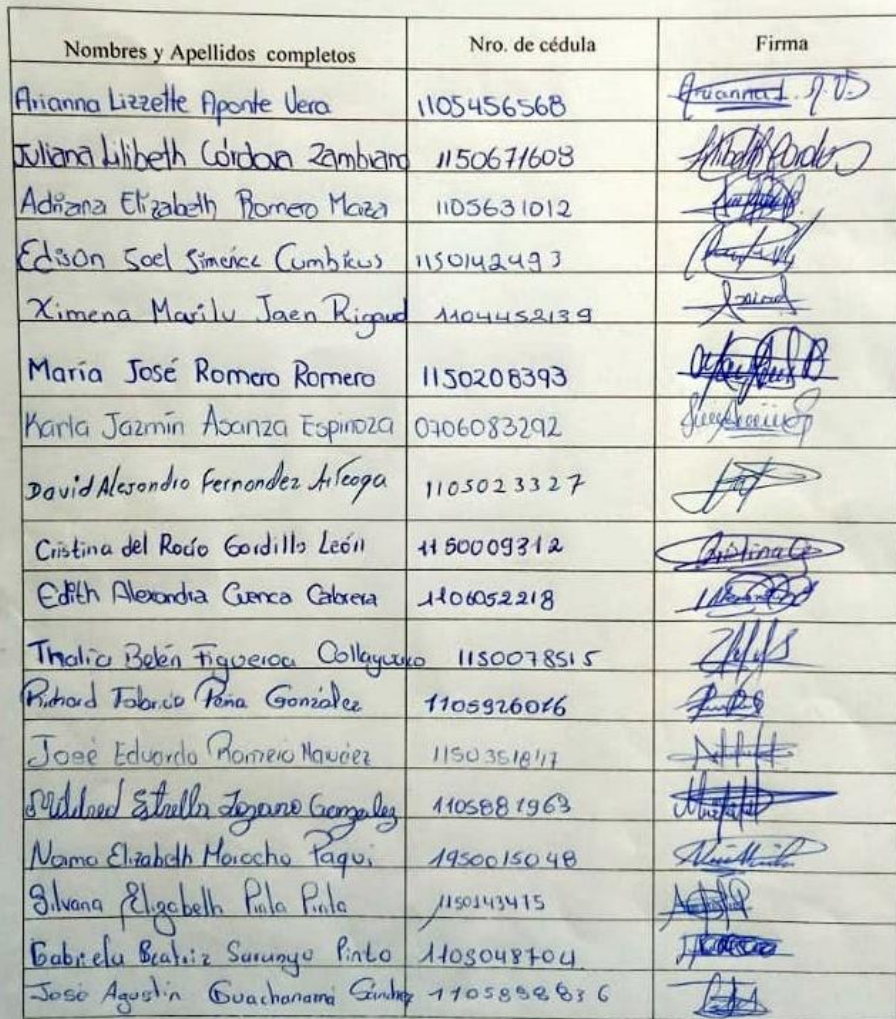 Nombres y Apellidos completos Nro. de cédula Firma
Arianna Lizzette Aponte Vera 1105456568 Arianna L. A. V.
Juliana Lilibeth Córdova Zambrano 1150671608
Adriana Elizabeth Romero Maza 1105631012
Edison Joel Jiménez Cumbicus 1150142493
Ximena Marilu Jaen Rigaud 1104452139
María José Romero Romero 1150208393
Karla Jazmín Asanza Espinoza 0706083292
David Alesandro Fernandez Arteaga 1105023327
Cristina del Rocío Gordillo León 1150009312
Edith Alexandra Cuenca Cabrera 1106052218
Thalia Belén Figueroa 1150078515
Richard Fabricio Peña González 1105926016
José Eduardo Romero
Mildred Estrella Lozano Gonzalez 1105881963
Norma Elizabeth Morocho Paqui 1950015048
Silvana Elizabeth Pinta Pinta 1150143475
Gabriela Beatriz Sarango Pinto 1105048704
José Agustín Guachanamá Sánchez 1105898836